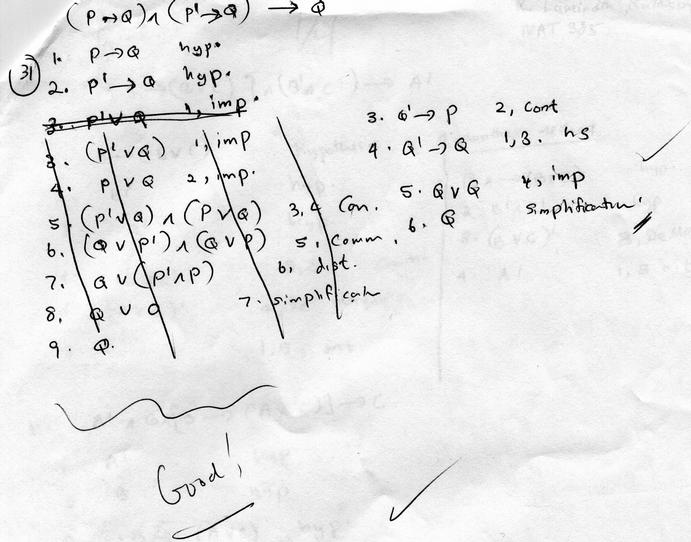 (P→Q) ∧ (P'→Q) → Q
31
1. P→Q hyp.
2. P'→Q hyp.
3. P' ∨ Q 1, imp.
3. (P' ∨ Q) 1, imp
4. P ∨ Q 2, imp.
5. (P' ∨ Q) ∧ (P ∨ Q) 3,4 Con.
6. (Q ∨ P') ∧ (Q ∨ P) 5, Comm.
7. Q ∨ (P' ∧ P) 6, dist.
8. Q ∨ O 7. simplification
9. Q.
3. Q' → P 2, cont
4. Q' → Q 1,3. hs
5. Q ∨ Q 4, imp
6. Q simplification.
Good!